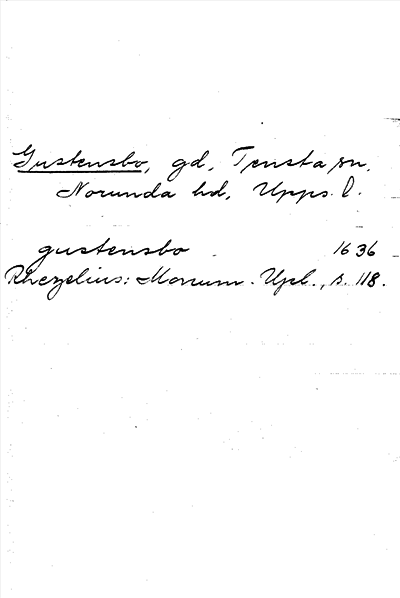 Gustensbo, gd, Tensta sn,
Norunda hd, Upps. l.
gustensbo 1636
Rhezelius: Monum. Upl., s. 118.